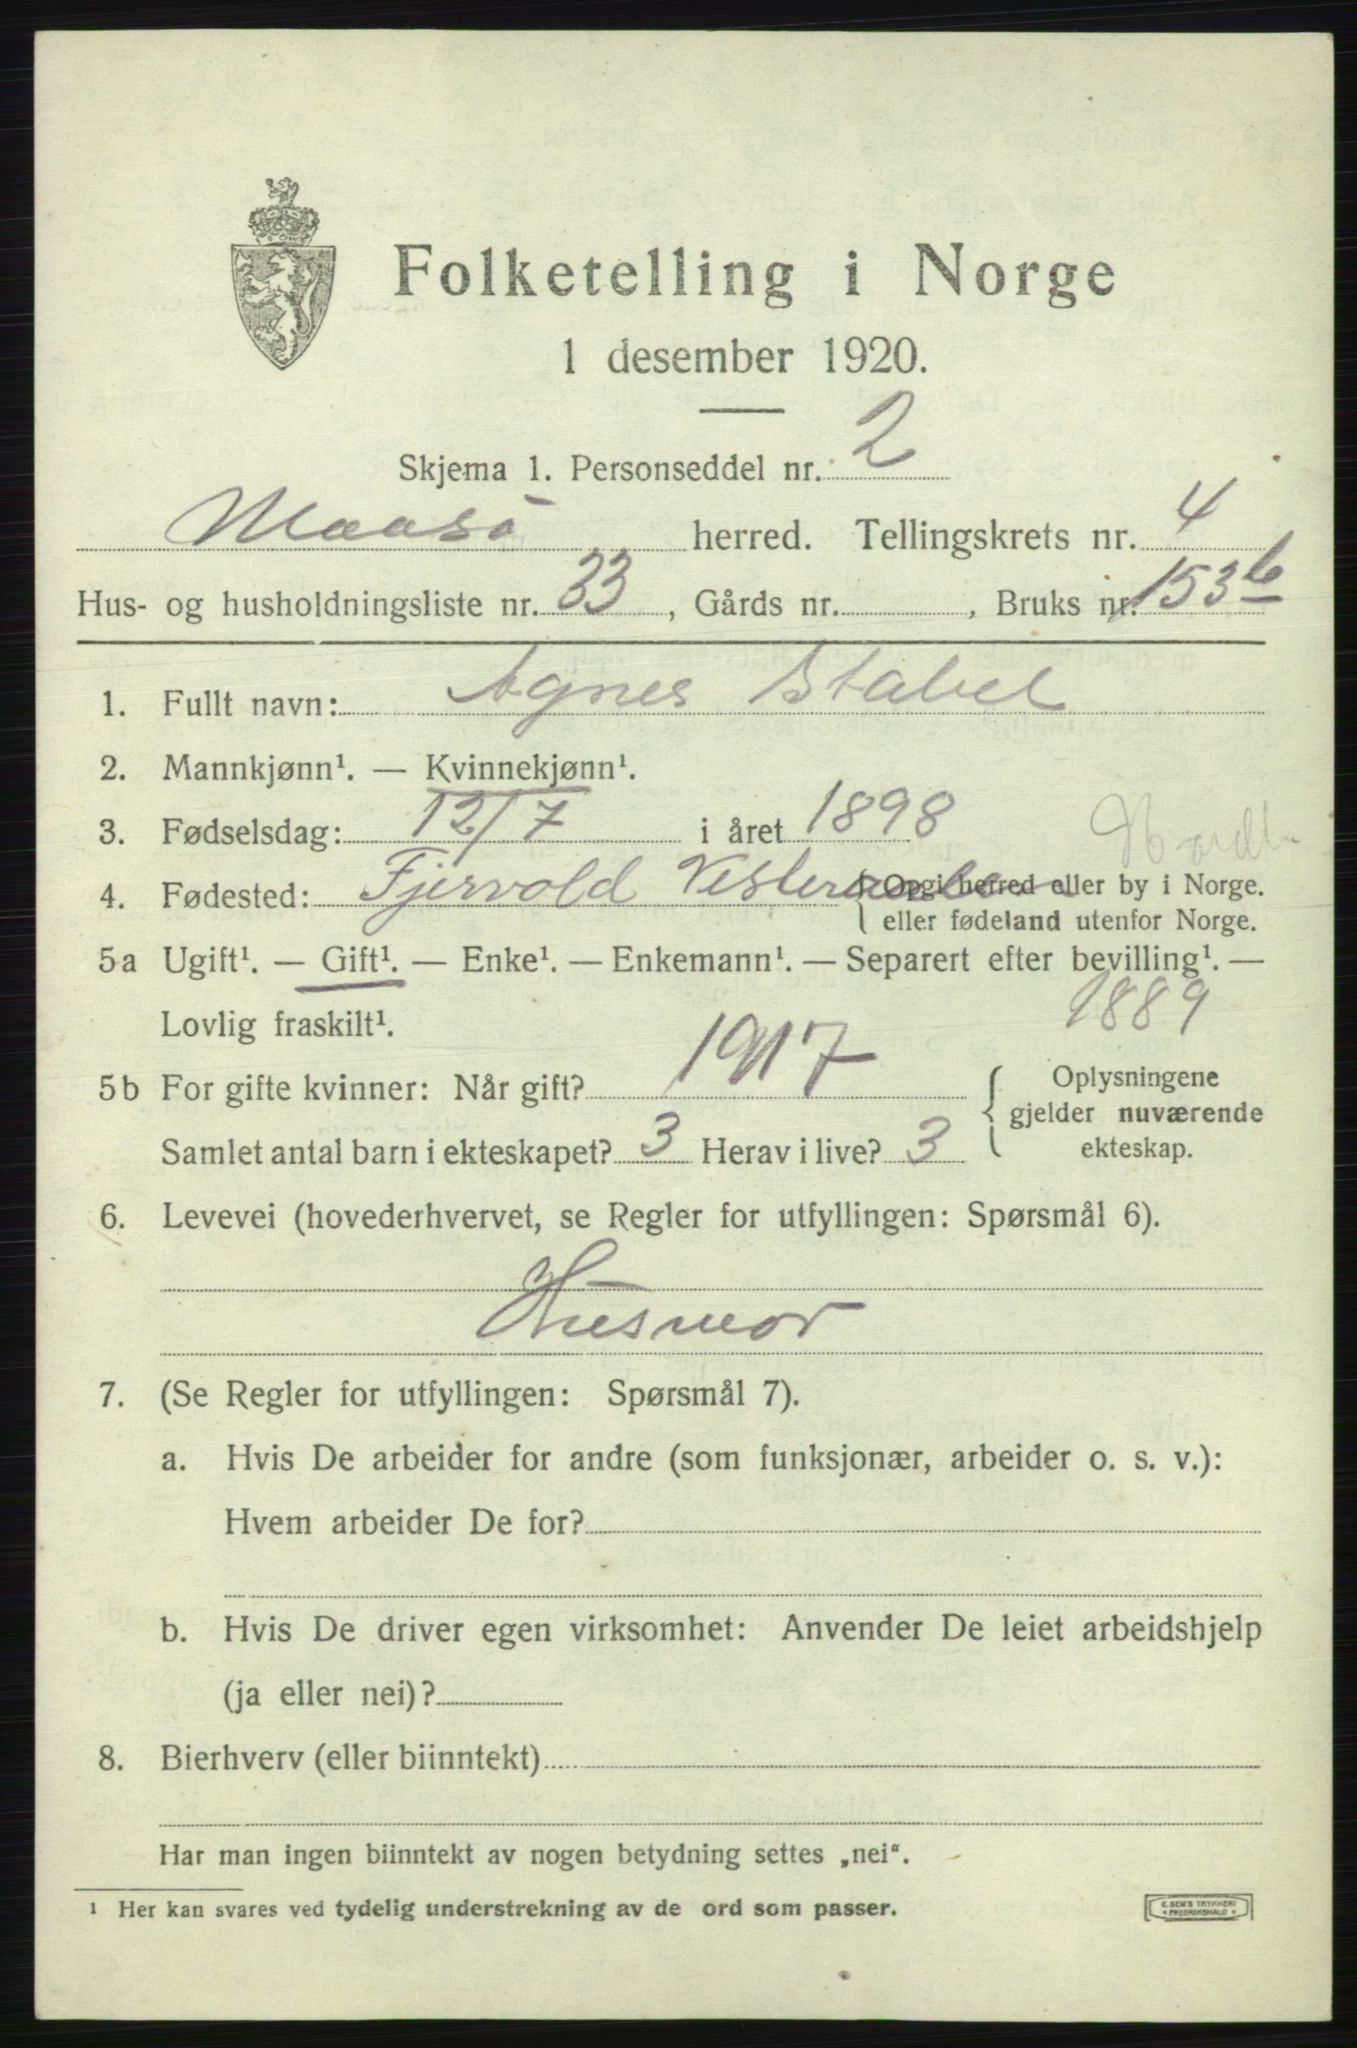 Folketelling i Norge
1 desember 1920.
Skjema 1. Personseddel nr. 2
Maasö herred. Tellingskrets nr. 4
Hus- og husholdningsliste nr. 33, Gårds nr. , Bruks nr. 153b
1. Fullt navn: Agnes Stabel
2. Mannkjønn¹. — Kvinnekjønn¹.
3. Fødselsdag: 12/7 i året 1898
4. Fødested: Fjervold Vesteraalen { Opgi herred eller by i Norge.
eller fødeland utenfor Norge.
5a Ugift¹. — Gift¹. — Enke¹. — Enkemann¹. — Separert efter bevilling¹. —
Lovlig fraskilt¹. 1889
5b For gifte kvinner: Når gift? 1917 { Oplysningene
gjelder nuværende
Samlet antal barn i ekteskapet? 3 Herav i live? 3 ekteskap.
6. Levevei (hovederhvervet, se Regler for utfyllingen: Spørsmål 6).
Husmor
7. (Se Regler for utfyllingen: Spørsmål 7).
a. Hvis De arbeider for andre (som funksjonær, arbeider o. s. v.):
Hvem arbeider De for?
b. Hvis De driver egen virksomhet: Anvender De leiet arbeidshjelp
(ja eller nei)?
8. Bierhverv (eller biinntekt)
Har man ingen biinntekt av nogen betydning settes „nei".
¹ Her kan svares ved tydelig understrekning av de ord som passer.
E. SEM'S TRYKKERI
FREDRIKSHALD